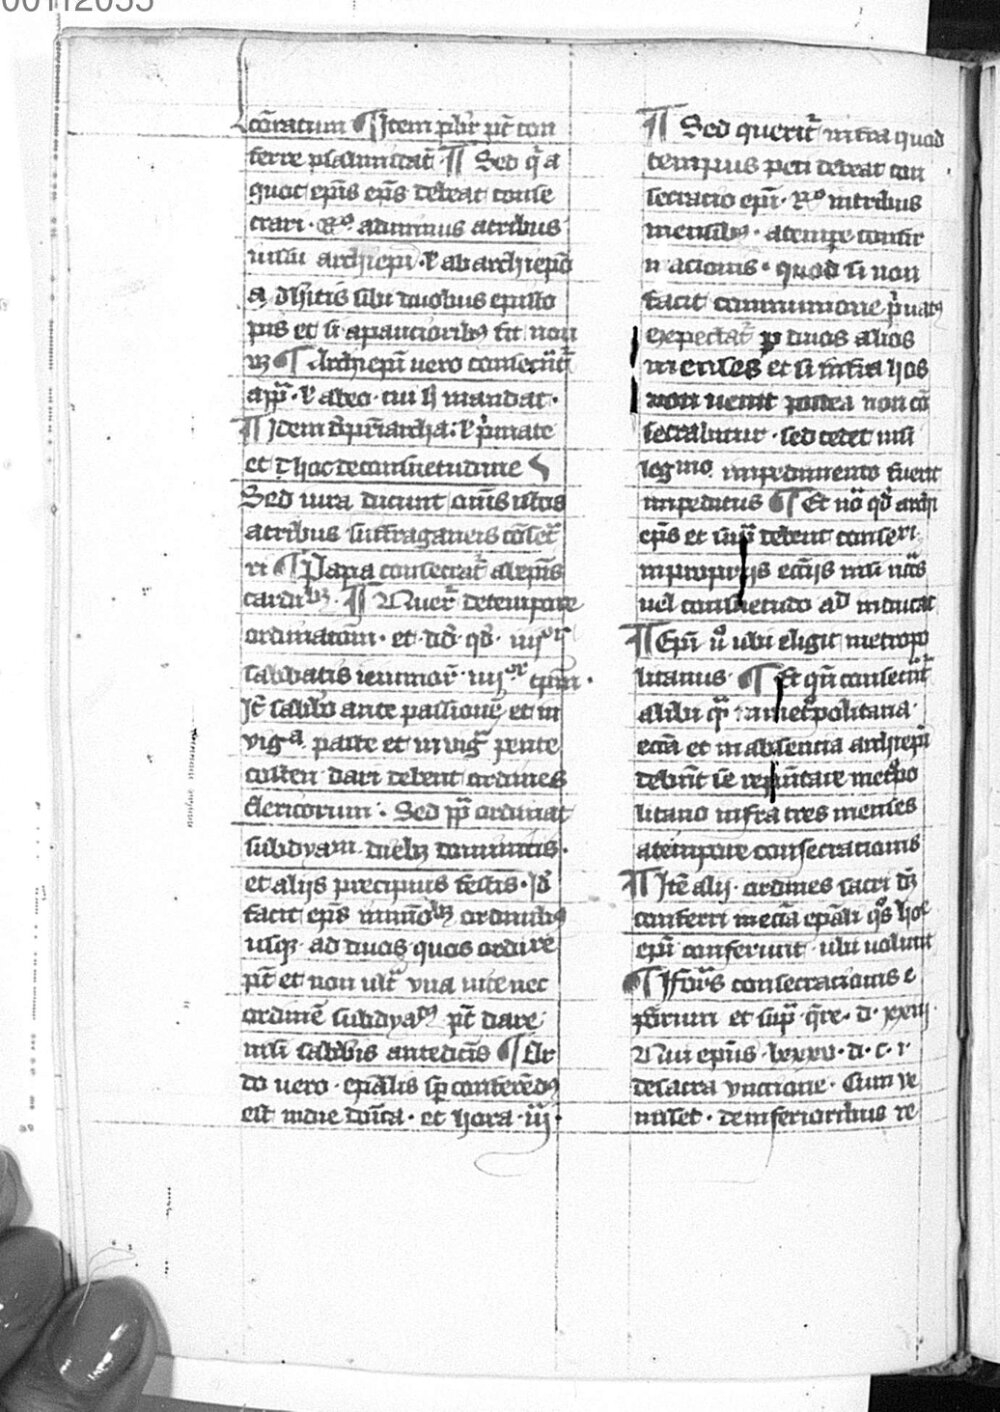 cōiratum ¶ Item pbr̄ pt̄ con
ferre psalmistat̄ ¶ Sed qr̄ a
quot ep̄is ep̄s debeat conse
crari · Rº adminus a tribus
nisi archiepi · l' ab archiepō
adhitis sibi duobus episco
pis et si a paucioribꝫ fit non
ꝫ ¶ Archiep̄i vero consecn̄t̄
 · l' ab eo · cui h̄ mandat ·
¶ Idem d' pr̄iarcha · l' p'mate
et t̄ hoc de consuetudine
Sed iura dicunt om̄s istos
a tribus suffraganeis cōset̄
ri ¶ Papa consecrat̄ ab ep̄is
cardi bꝫ · ¶ de tempore
ordinatōm · et dō qd̄ · iiijᵒʳ
sabbatis ieiunioꝝ iiijᵒʳ tp̄m ·
It̄ sabbo ante passionē et in
vigᵃ pasce et in viḡ pente
costen dari debent ordines
clericorum · Sed pp̄ ordinat
subdyaᵐ · duebꝫ dominicis ·
et alijs precipuis festis · Id̄
facit ep̄s minōbꝫ ordinibꝫ
usqꝫ ad duos quos ordīre
pt̄ et non ult̄ vna nite nec
ordinē subdyaᵐ pt̄ dare
nisi sabbīs antedic̄is ¶ Or
do vero · ep̄alis sp̄ conferēdꝰ
est in die dōica · et hora · iij ·
¶ Sed querit̄ infra quod
tempus peti debeat con
secracio ep̄i · Rº infra tribus
mensibꝫ · a tempe confir
macionis · quod si non
facit communione p'uatꝰ
Expectat̄ p duos alios
menses et si infra hos
non uenit postea non cō
secrabitur · sed cedet nisi
legᵐᵒ impedimento fuerit
impeditus ¶ Et nō qd̄ archi
ep̄s et debent conseri
in proprijs ecc̄ijs nisi nc̄as
uel consuetudo ad inducat
¶ Ep̄i ū ubi eligit metropo
litanus · ¶ Et qn̄ consecn̄t̄
alibi qᵃ in metᵒpolitana
ecc̄a et in absencia archiep̄i
debn̄t se rep̄ntare metᵒpo
litano infra tres menses
a tempore consecracionis
¶ Itē alij · ordines sacri dn̄t
conferri in ecc̄a ep̄ali qᵒs hoc
ep̄i conferunt · ubi uolunt
¶ consecracionis e
et sup̄ · qr̄e · d · xxiij ·
 ep̄us · lxxxv · d · c · i ·
de sacra vnctione · Cum ve
nisset · de inferioribus re